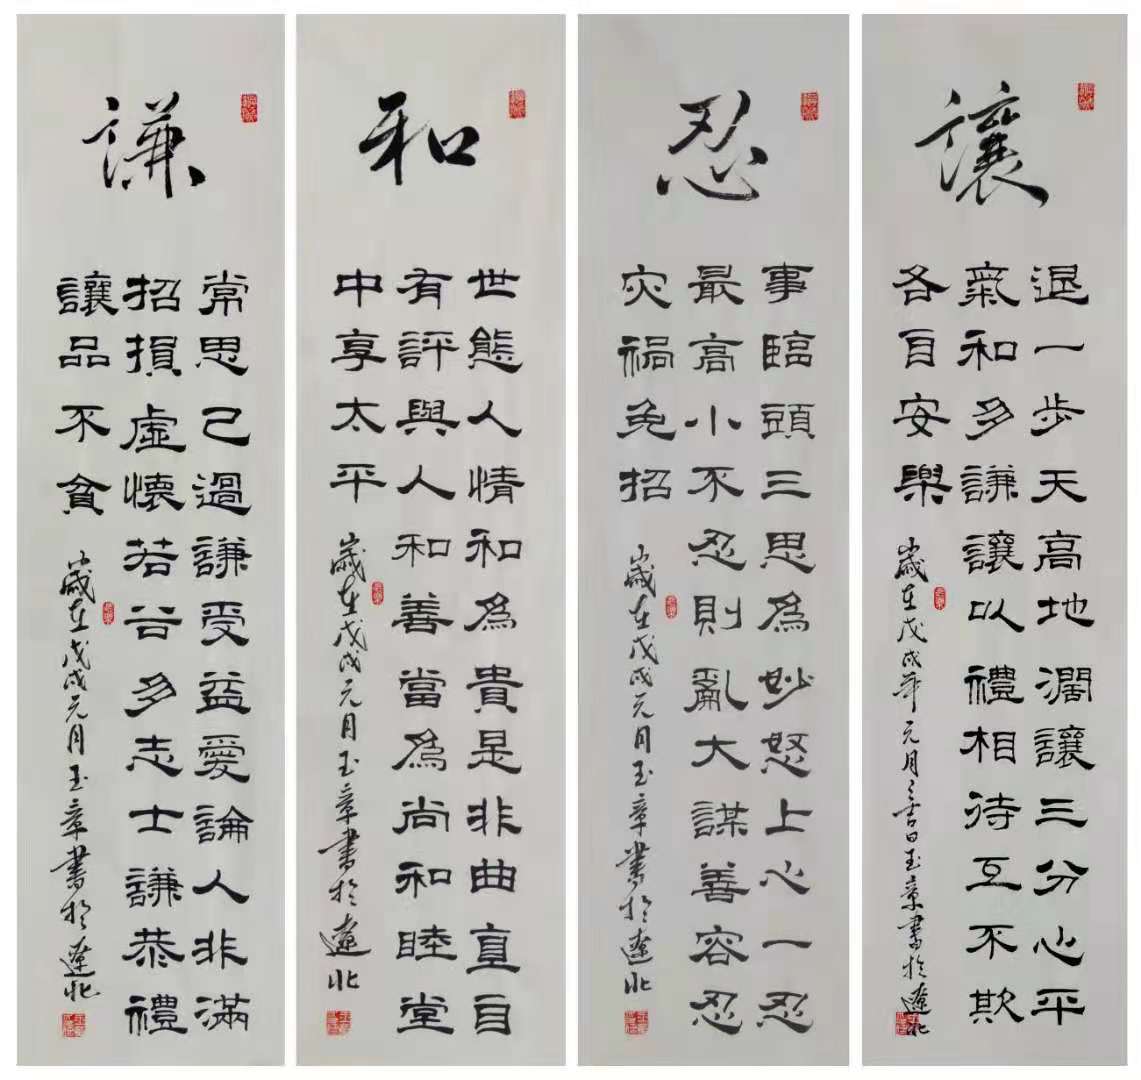 謙
常思己過謙受益愛論人非滿
招損虛懷若谷多志士謙恭禮
讓品不貪
歲在戊戌元月玉章書於遼北
和
世態人情和為貴是非曲直自
有評與人和善當為尚和睦堂
中享太平
歲在戊戌元月玉章書於遼北
忍
事臨頭三思為妙怒上心一忍
最高小不忍則亂大謀善容忍
灾禍免招
歲在戊戌元月玉章書於遼北
讓
退一步天高地濶讓三分心平
氣和多謙讓以禮相待互不欺
各自安樂
歲在戊戌年元月之吉日玉章書於遼北